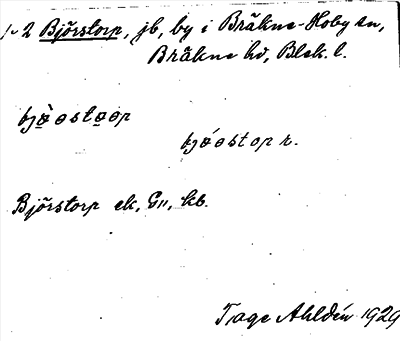 1-2 Björstorp, jb, by i Bräkne-Hoby sn,
Bräkne hd, Blek. l.
bjö̀ɵstɵp
bjóɵstop r.
Björstorp ek, G11, kb.
Tage Ahldén 1929